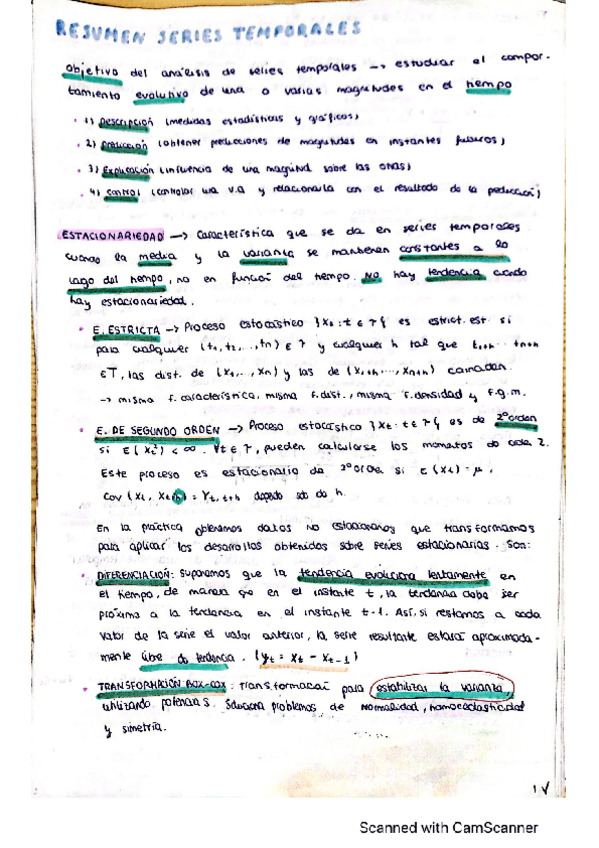 RESUMEN SERIES TEMPORALES
Objetivo del análisis de series temporales → estudiar el compor-
tamiento evolutivo de una o varias magnitudes en el tiempo
1) Descripción (medidas estadísticas y gráficos)
2) Predicción (obtener predicciones de magnitudes en instantes futuros)
3) Explicación (influencia de una magnitud sobre las otras)
4) Control (controlar una V.A y relacionarla con el resultado de la predicción)
ESTACIONARIEDAD → Característica que se da en series temporales
cuando la media y la varianza se mantienen constantes a lo
lago del tiempo, no en función del tiempo. No hay tendencia cuando
hay estacionariedad.
• E. ESTRICTA → Proceso estocástico {Xt : t ∈ T} es estrict. est si
para cualquier (t1, t2, ..., tn) ∈ T y cualquier h tal que t1+h ... tn+h
∈T, las dist. de (X1, ..., Xn) y las de (X1+h, ..., Xn+h) coinciden.
→ misma f. característica, misma f. dist., misma f. densidad y f.g.m.
• E. DE SEGUNDO ORDEN → Proceso estocástico {Xt : t ∈ T} es de 2º orden
si E(Xt²) < ∞ ∀t ∈ T, pueden calcularse los momentos de orden 2.
Este proceso es estacionario de 2º orden si E(Xt) = μ,
Cov (Xt, Xt+h) = γt, t+h depende solo de h.
En la práctica obtenemos datos no estacionarios que transformamos
para aplicar los desarrollos obtenidos sobre series estacionarias. Son:
• DIFERENCIACIÓN: Suponemos que la tendencia evoluciona lentamente en
el tiempo, de manera que en el instante t, la tendencia debe ser
próxima a la tendencia en el instante t-1. Así, si restamos a cada
valor de la serie el valor anterior, la serie resultante estará aproximada-
mente libre de tendencia. (yt = Xt - Xt-1)
• TRANSFORMACIÓN BOX-COX: transformación para estabilizar la varianza,
utilizando potencias. Soluciona problemas de normalidad, homocedasticidad
y simetría.
Scanned with CamScanner